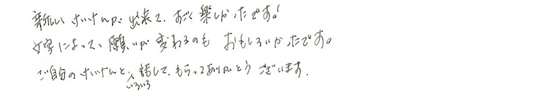 新しいけいけんが出来て、すごく楽しかったです!
文字によって、願いが変わるのもおもしろいかったです。
ご自分のけいけんといろいろ話して、もらってありがとうございます。